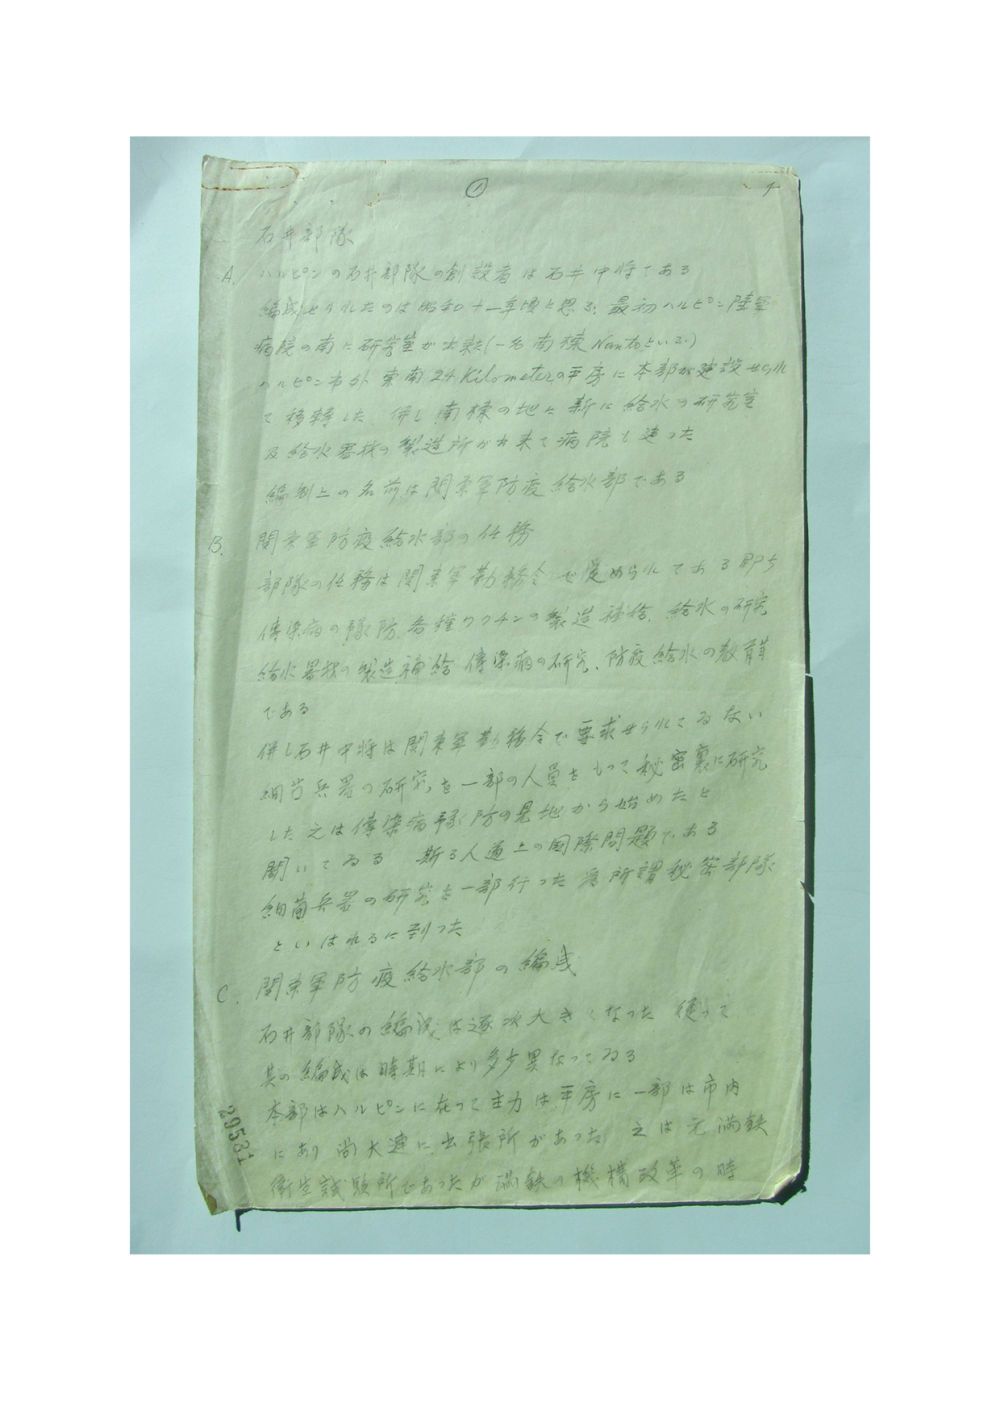 ①
石井部隊
A. ハルピンの石井部隊の創設者は石井中将である
編成せられたのは昭和十一年頃と思ふ、最初ハルピン陸軍
病院の南に研究室が出来(一名南棟 Nantoといふ)
ハルピン市外東南24 Kilometerの平房に本部が建設せられ
て移轉した 併し南棟の地に新に給水の研究室
及給水器材の製造所が出来て病院も建った
編制上の名前は関東軍防疫給水部である
B. 関東軍防疫給水部の任務
部隊の任務は関東軍勤務令で定められてある即ち
傳染病の豫防、各種ワクチンの製造補給、給水の研究
給水器材の製造、補給 傳染病の研究、防疫給水の教育等
である
併し石井中将は関東軍勤務令で要求せられてゐない
細菌兵器の研究を一部の人員をもって秘密裏に研究
した 之は傳染病豫防の見地から始めたと
聞いてゐる 斯る人道上の国際問題である
細菌兵器の研究を一部行った為所謂秘密部隊
といはれるに到った
C. 関東軍防疫給水部の編成
石井部隊の編成は逐次大きくなった 従って
其の編成は時期により多少異なってゐる
本部はハルピンに在って主力は平房に一部は市内
にあり 尚大連に出張所があった 之は元満鉄
衛生試験所であったが満鉄の機構改革の時
29531